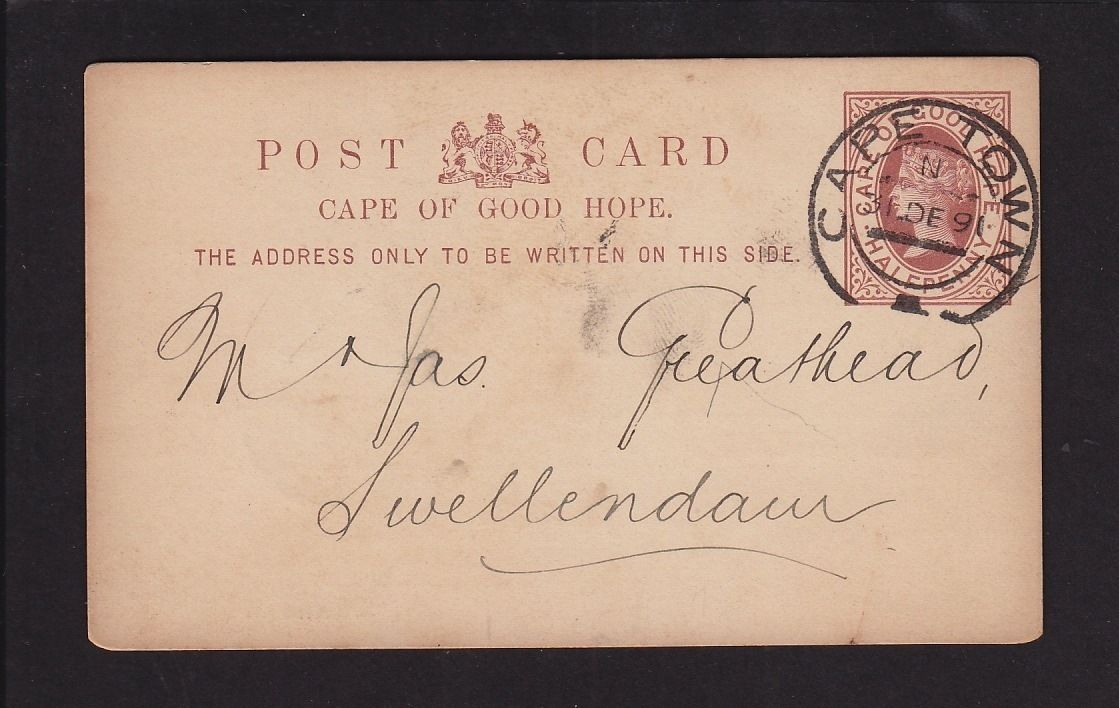 POST CARD
CAPE OF GOOD HOPE.
THE ADDRESS ONLY TO BE WRITTEN ON THIS SIDE.
CAPE OF GOOD HOPE
HALFPENNY
CAPE TOWN
N
31 DE 91
Mr Jas. Greathead,
Swellendam